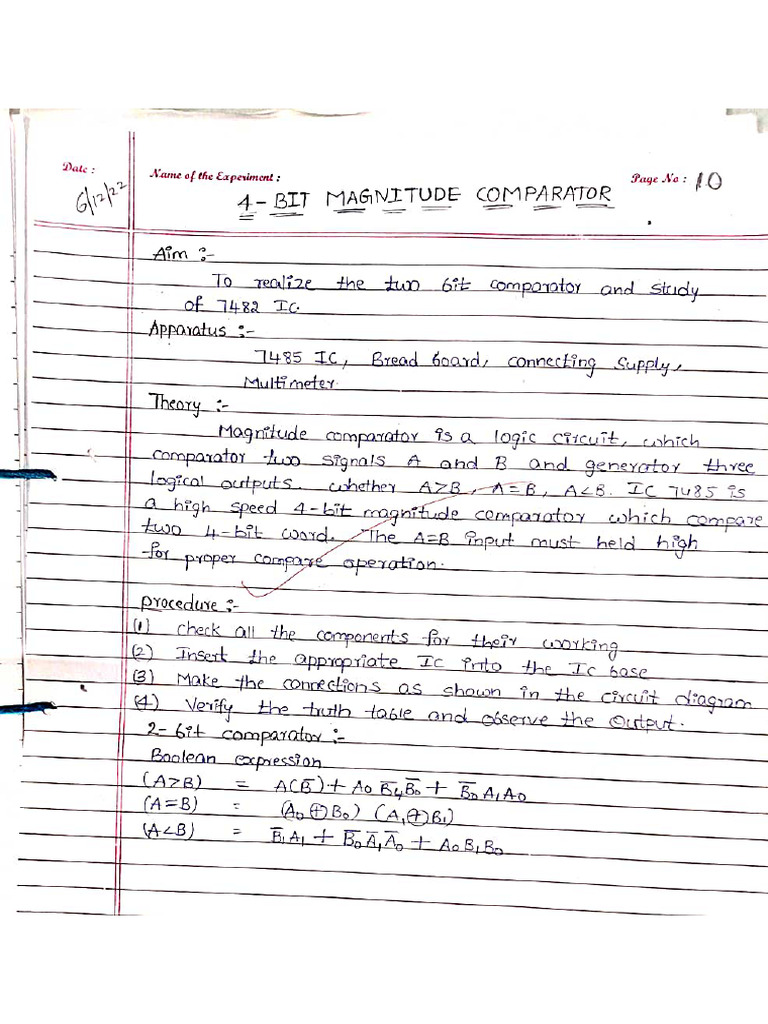 Date :
Name of the Experiment :
Page No : 10
6/12/22
4-BIT MAGNITUDE COMPARATOR
Aim :-
To realize the two bit comparator and study
of 7482 IC.
Apparatus :-
7485 IC, Bread board, connecting supply,
Multimeter.
Theory :-
Magnitude comparator is a logic circuit, which
comparator two signals A and B and generator three
logical outputs. whether A>B, A=B, A<B. IC 7485 is
a high speed 4-bit magnitude comparator which compare
two 4-bit word. The A=B input must held high
for proper compare operation.
procedure :-
(1) check all the components for their working
(2) Insert the appropriate IC into the IC base
(3) Make the connections as shown in the circuit diagram
(4) Verify the truth table and observe the output.
2-bit comparator :-
Boolean expression
(A>B) = A(B̅) + A0 B̅4 B̅0 + B̅0 A1 A0
(A=B) = (A0 ⊕ B0) (A1 ⊕ B1)
(A<B) = B̅1 A1 + B̅0 A̅1 A̅0 + A0 B1 B0